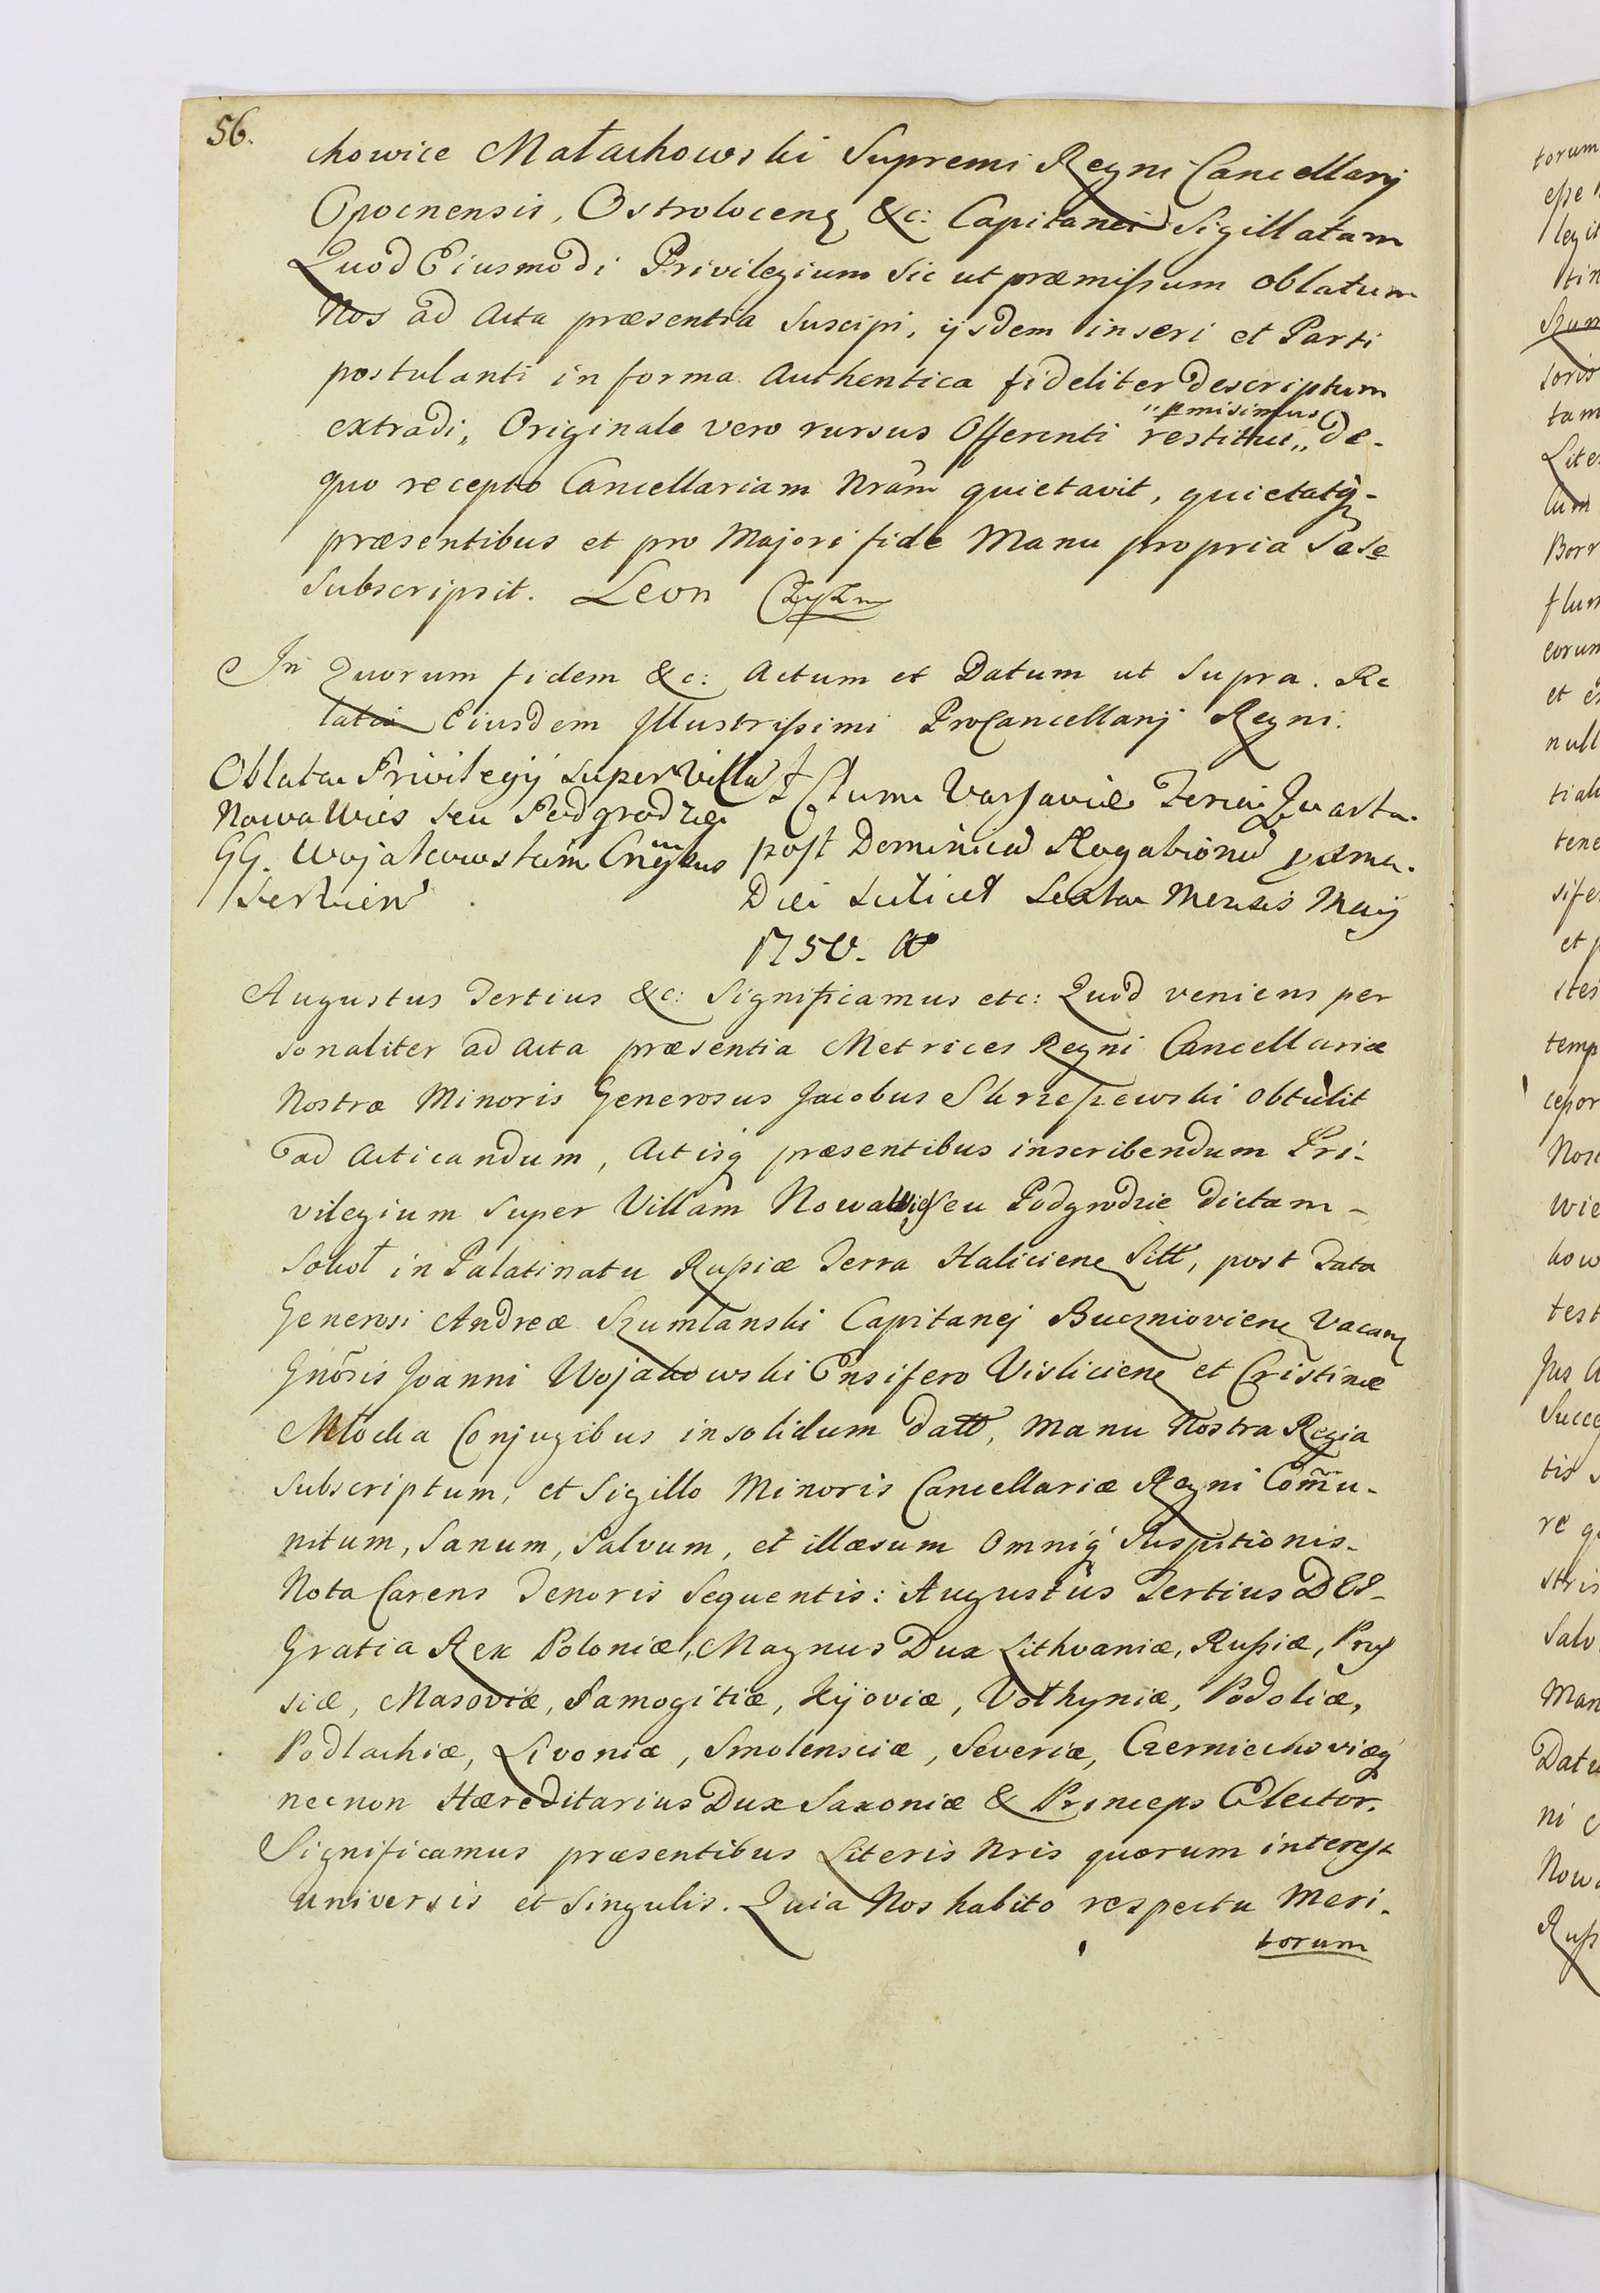 56.
chowice Małachowski Supremi Regni Cancellarij
Opocnensis, Ostrołocenȝ &c: Capitanei Sigillatam
Quod Eiusmodi Privilegium sic ut præmissum oblatum
Nos ad Acta præsentia suscipi, ijsdem inseri et Parti
postulanti in forma Authentica fideliter descriptum
extradi, Originale vero rursus Offerenti restitui „ de-
„ pmisimus
quo recepto Cancellariam Nrãm quietavit, quietatq-
præsentibus et pro Majori fide Manu propria sese
subscripsit. Leon
In Quorum fidem &c: Actum et Datum ut supra. Re
latia Eiusdem Jllustrissimi ProCancellarij Regni.
Oblata Privilegij super Villa
Nowa Wies seu Podgrodzie
GG. Wojakowskim Cnĩgibus
Actum Varsaviæ Feria Quarta
post Dominica Rogationu pxma.
Die scilicet Sexta Mensis Maij
1750.
Augustus Tertius &c: Significamus etc: Quod veniens per
sonaliter ad Acta præsentia Metrices Regni Cancellariæ
Nostræ Minoris Generosus Jacobus Skrzeszewski obtulit
ad Acticandum, Actisq præsentibus inscribendum Pri-
vilegium super Villam Nowawieś seu Podgrodzie dictam-
in Palatinatu Russiæ Terra Halicienȝ Sitt, post Fata
Generosi Andreæ Szumlanski Capitanej Bucznioviene Vacanȝ
Gnõsis Joanni Wojakowski Ensifero Vislicienȝ et Cristinæ
Młocka Conjugibus insolidum datt, manu Nostra Regia
subscriptum, et sigillo Minoris Cancellariæ Regni Com̃u-
nitum, Sanum, Salvum, et illæsum Omniq Suspitionis-
Nota Carens Tenoris sequentis: Augustus Tertius DEI-
Gratia Rex Poloniæ, Magnus Dux Lithvaniæ, Russiæ, Prus
siæ, Masoviæ, Samogitiæ, Kijoviæ, Volhyniæ, Podoliæ,
Podlachiæ, Livoniæ, Smolensciæ, Severiæ, Czerniechoviæq
necnon Hæreditarius Dux Saxoniæ & Princeps Elector.
Significamus præsentibus Literis Nris quorum interest
universis et singulis. Quia Nos habito respectu Meri-
torum